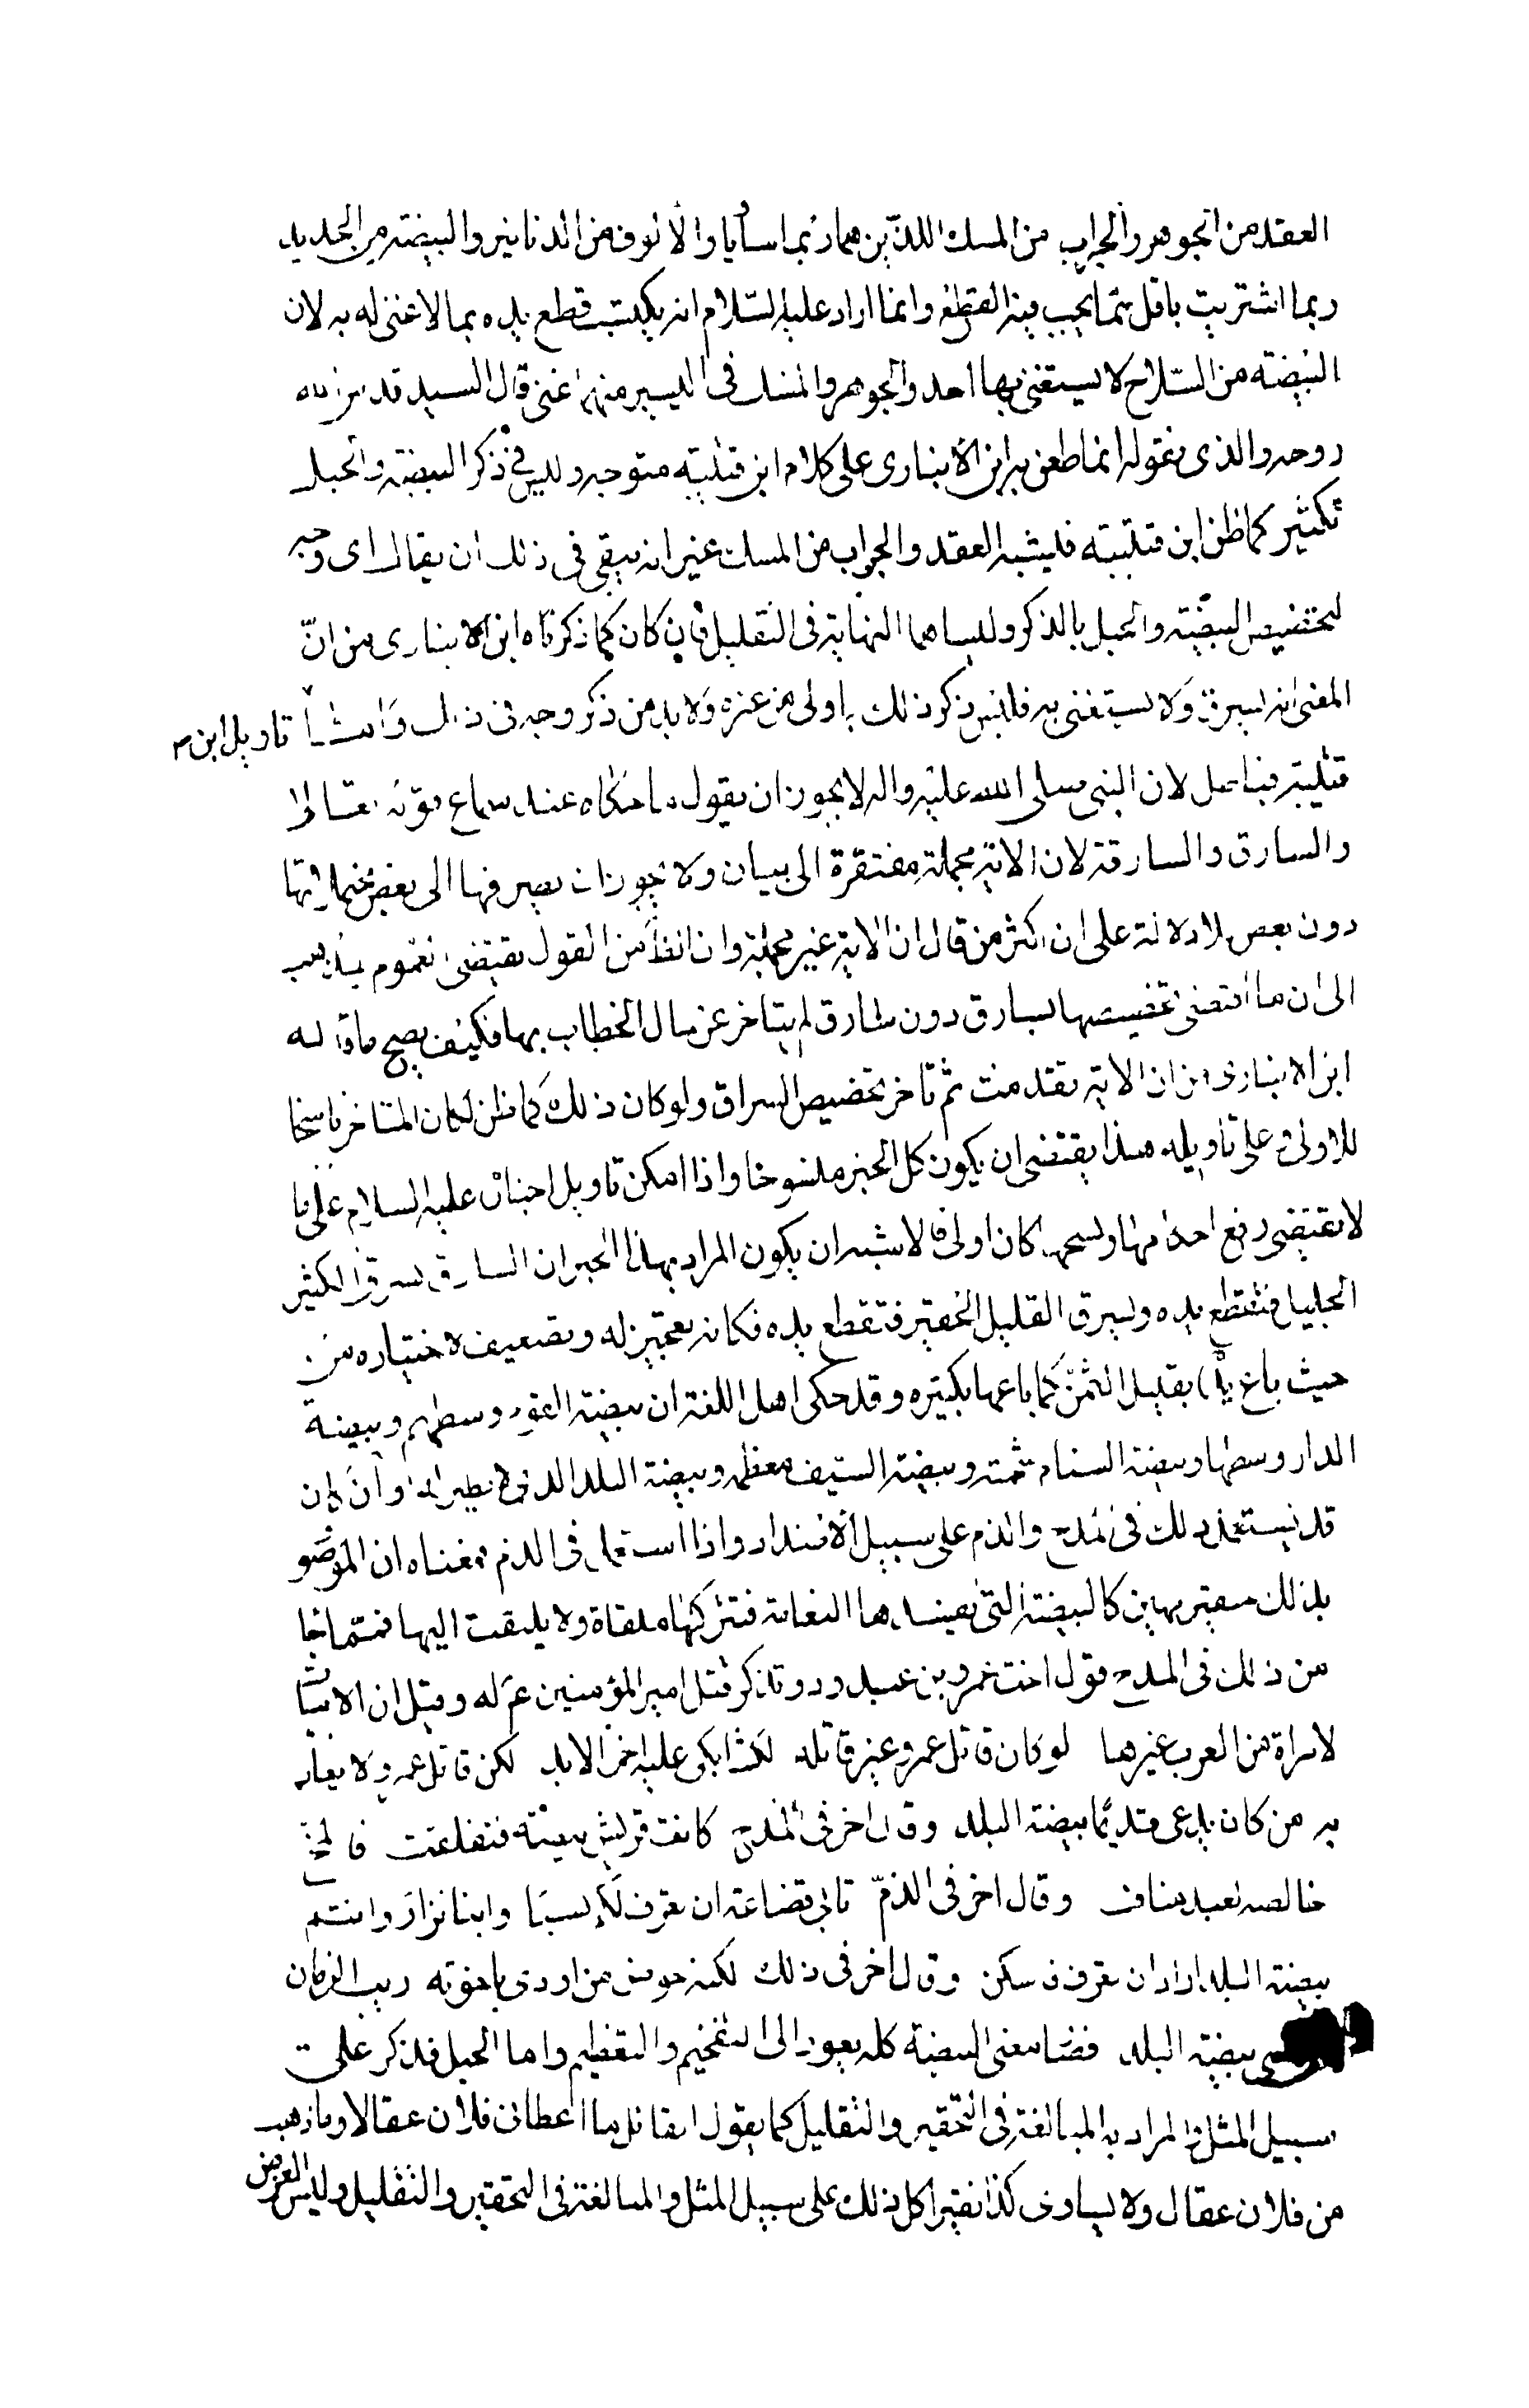 العقد من الجوهر والجراب من المسك اللذين هما ربما ساويا الالوف من الدنانير والبيضة من الحديد
ربما اشتريت باقل مما يجب فيه القطع وانما اراد عليه السلام انه يكتسب قطع يده بما لا غنى له به لان
البيضة من السلاح لا يستغنى بها احد والجوهر والمسك فى اليسير منهما غنى قال السيد قدس الله
روحه والذى نقوله انما طعن به ابن الانبارى على كلام ابن قتيبة متوجه وليس فى ذكر البيضة والحبل
تكثير كما ظن ابن قتيبة فيشبه العقد والجراب من المسك غير انه يبقى فى ذلك ان يقال اى وجه
لتخصيص البيضة والحبل بالذكر وليسا هما النهاية فى التقليل فان كان كما ذكرناه ابن الانبارى من ان
المعنى انه يسرق ولا يستغنى به فليس ذكر ذلك باولى من غيره ولا بد من ذكر وجه فى ذلك وامثا تاويل ابن
قتيبة فباطل لان النبى صلى الله عليه واله لا يجوز ان يقول ما حكاه عند سماع قوله تعالى
والسارق والسارقة لان الاية مجملة مفتقرة الى بيان ولا يجوز ان يصرفها الى بعض محتملاتها
دون بعض بلا دلالة على ان اكثر من قال ان الاية غير مجملة وان ظاهر القول يقتضى العموم يذهب
الى ان ما اقتضى تخصيصها بسارق دون سارق لم يتاخر عن حال الخطاب بها فكيف يصح ما قاله
ابن الانبارى من ان الاية تقدمت ثم تاخر تخصيص السراق ولو كان ذلك كما ظن لكان المتاخر ناسخا
للاولى وعلى تاويله هذا يقتضى ان يكون كل الخبر منسوخا واذا امكن تاويل اخباره عليه السلام على ما
لا يقتضى رفع احكامها ونسخها كان اولى فالاشبه ان يكون المراد بهذا الخبر ان السارق يسرق الكثير
الجليل فتقطع يده ويسرق القليل الحقير فتقطع يده فكانه تعجيز له وتضعيف لاختياره من
حيث باع يده بقليل الثمن كما باعها بكثيره وقد حكى اهل اللغة ان بيضة القوم وسطهم وبيضة
الدار وسطها وبيضة السنام شحمته وبيضة الصيف معظمه وبيضة البلد الذى لا نظير له وان كان
قد يستعمل ذلك فى المدح والذم على سبيل الاضداد واذا استعمل فى الذم فمعناه ان الموصو
بذلك حقير مهين كالبيضة التى تفسدها النعامة فتتركها ملقاة ولا يلتفت اليها فمما جا
من ذلك فى المدح قول اخت عمرو بن عبد ود وتذكر قتل امير المؤمنين ع له وقيل ان الابيات
لامراة من العرب غيرها لو كان قاتل عمرو غير قاتله لكنت ابكى عليه اخر الابد لكن قاتل عمرو لا يعاب
به من كان يدعى قديما بيضة البلد وقال اخر فى المدح كانت قريش بيضة فتفلقت فالمخ
خالصه لعبد مناف وقال اخر فى الذم تابى قضاعة ان تعرف لكم نسبا وابنا نزار وانتم
بيضة البلد اراد ان تعرف فسكن وقال اخر فى ذلك لكنه حوض من اودى باخوته ريب الزمان
بيضة البلد فصار معنى البيضة كله يعود الى التفخيم والتعظيم واما الحبل فذكر على
سبيل المثل والمراد به المبالغة فى التحقير والتقليل كما يقول القائل ما اعطانى فلان عقالا وما ذهب
من فلان عقال ولا يساوى كذا نقيرا كل ذلك على سبيل المثل والمبالغة فى التحقير والتقليل وليس الغرض